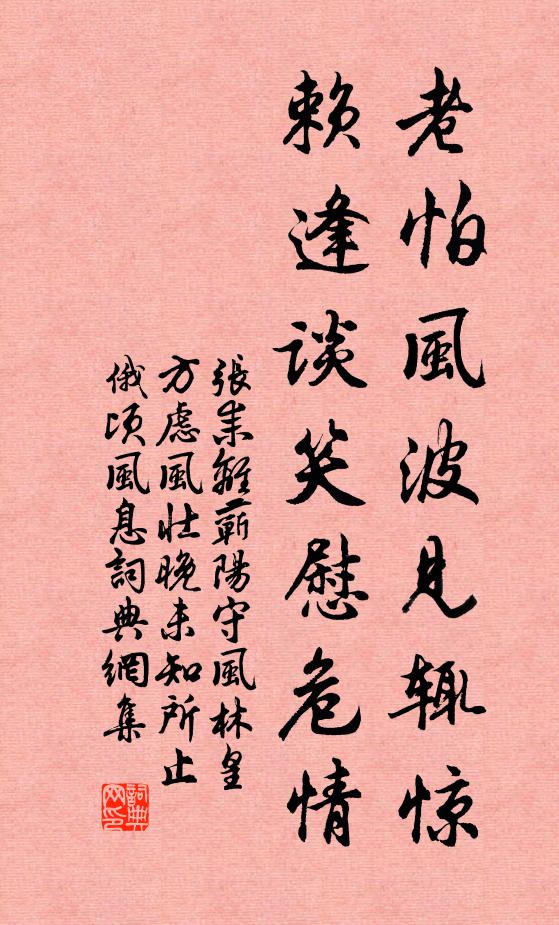 老怕風波見辄惊
赖逢谈笑慰危情
張耒離蘄陽守風林皇
方慮風壯晚未知所止
俄頃風息詞典網集
詞典
网印